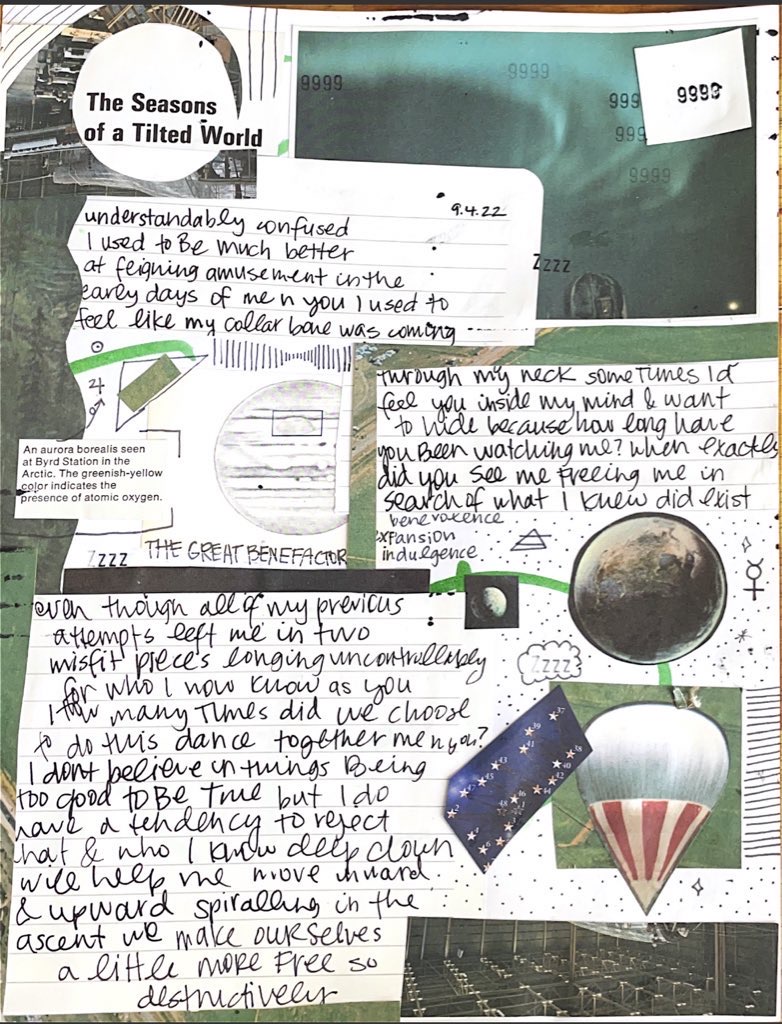 The Seasons
of a Tilted World
9999
9999
9999
999
999
9999
9.4.22
understandably confused
I used to Be much better
at feigning amusement in the
early days of me n you I used to
feel like my collar bone was coming
Zzzz
through my neck sometimes I'd
feel you inside my mind & want
to hide because how long have
you Been watching me? when exactly
did you see me freeing me in
search of what I knew did exist
♃
An aurora borealis seen
at Byrd Station in the
Arctic. The greenish-yellow
color indicates the
presence of atomic oxygen.
benevolence
expansion
indulgence
Zzzz
THE GREAT BENEFACTOR
☿
even though all of my previous
attempts left me in two
misfit piece's longing uncontrollably
for who I now know as you
how many times did we choose
to do this dance together me n you?
I dont believe in things Being
too good to Be true but I do
have a tendency to reject
what & who I know deep down
will help me move inward
& upward spiralling in the
ascent we make ourselves
a little more Free so
destructively
Zzzz
37
39
41
38
40
43
42
45
44
47
46
48
2
4
6